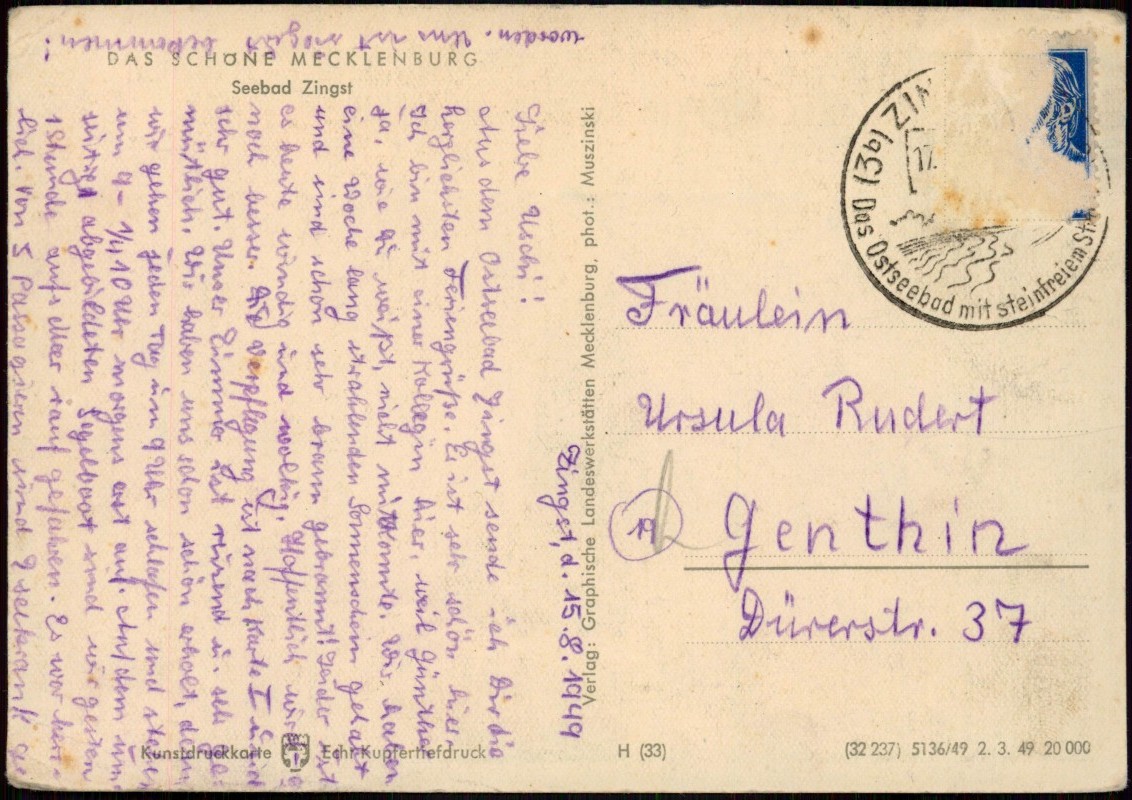 DAS SCHÖNE MECKLENBURG
Seebad Zingst
Zingst, d. 15.8.1949
Liebe Uschi!
Aus dem Ostseebad Zingst sende ich Dir die
herzlichsten Feriengrüße. Es ist sehr schön hier.
Ich bin mit einer Kollegin hier, weil Günther
ja, wie Du weißt, nicht mitkonnte. Wir haben
eine Woche lang strahlenden Sonnenschein gehabt
und sind schön sehr braun gebrannt. Leider ist
es heute windig und wolkig. Hoffentlich wird es
noch besser. Die Verpflegung ist nach Karte I und
sehr gut. Unser Zimmer ist reizend u. sehr ge-
mütlich. Wir haben uns schon schön erholt, denn
wir gehen jeden Tag um 9 Uhr schlafen und stehen
um 9 - 1/4 10 Uhr morgens erst auf. Auf dem um-
seitig abgebildeten Segelboot sind wir gestern
1 Stunde aufs Meer rauf gefahren. Es war herr-
lich. Von 5 Passagieren sind 2 seekrank ge
worden. Uns ist bekommen!
Verlag: Graphische Landeswerkstätten Mecklenburg, phot.: Muszinski
(3a) ZIN
17.
Das Ostseebad mit steinfreiem St
Fräulein
Ursula Rudert
(19) Genthin
Dürerstr. 37
Kunstdruckkarte Echt Kupfertiefdruck
H (33)
(32 237) 5136/49 2. 3. 49 20 000